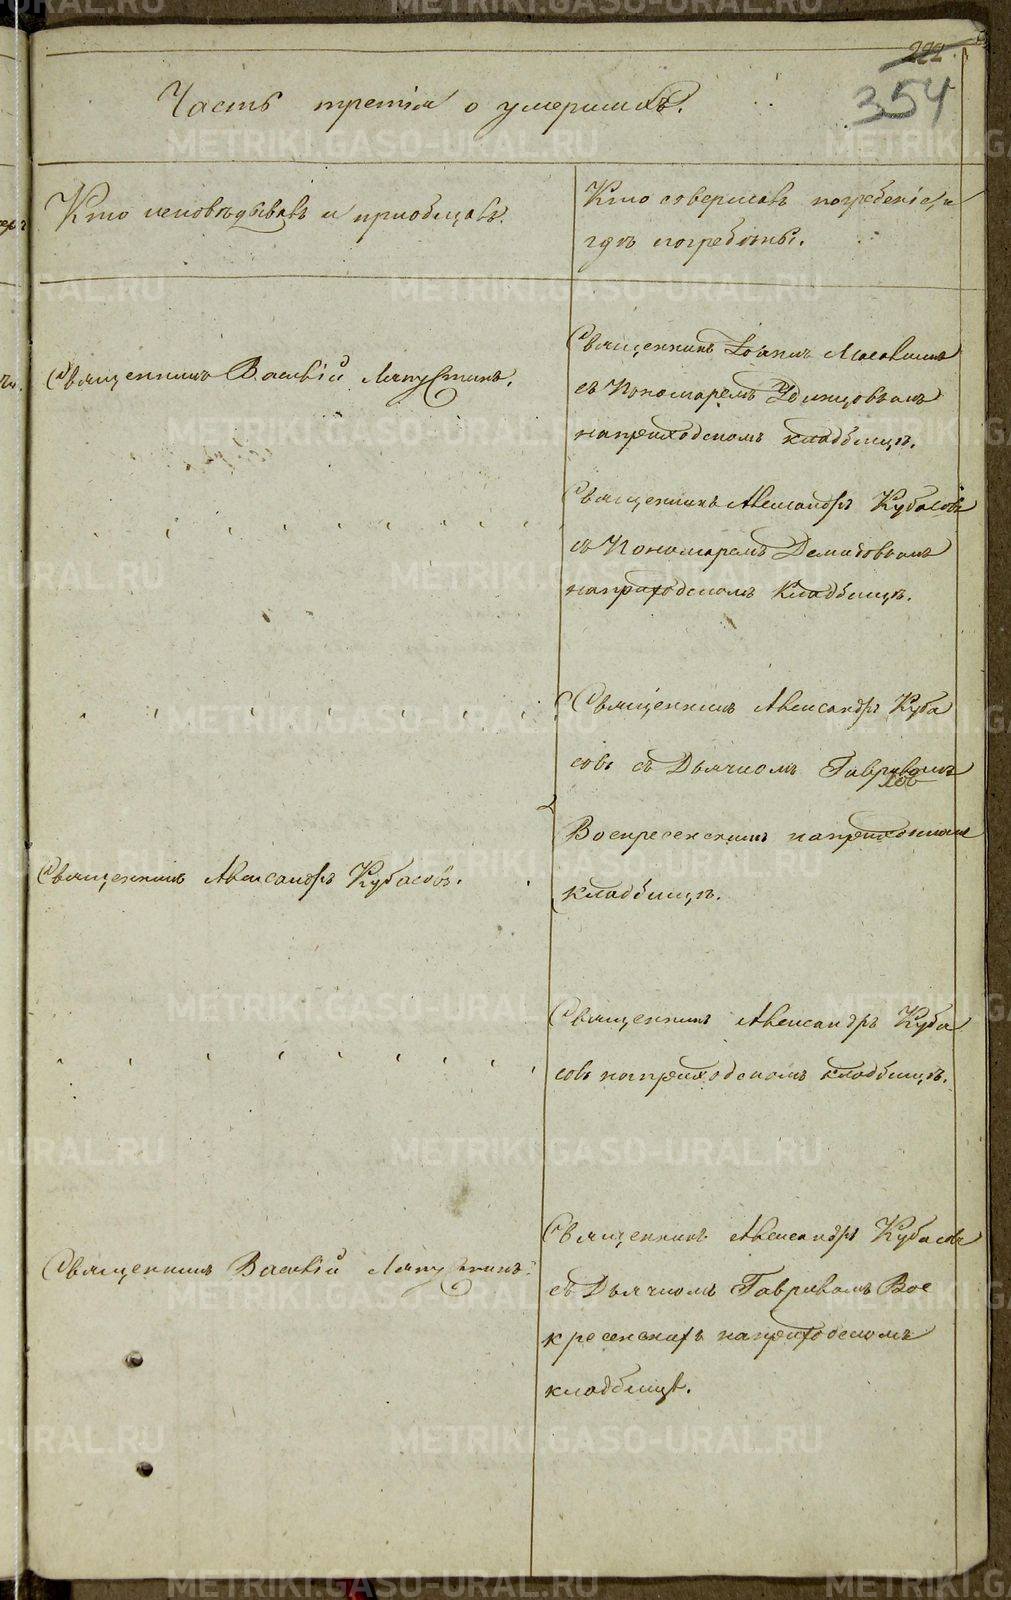 222
354
Часть третія о умершихъ.
Кто исповѣдывалъ и пріобщалъ.
Кто совершалъ погребеніе, и
гдѣ погребены.
Священникъ Василій Ляпустинъ.
Священникъ Іоаннъ
съ Пономаремъ Удинцовымъ
на приходскомъ кладбищѣ.
Священникъ Александръ Кубасовъ
съ Пономаремъ Демидовымъ
на приходскомъ Кладбищѣ.
Священникъ Александръ Куба
совъ съ Дьячкомъ Гавриломъ
Воскресенскимъ на приходскомъ
кладбищѣ.
Священникъ Александръ Кубасовъ.
Священникъ Александръ Куба
совъ на приходскомъ кладбищѣ.
Священникъ Василій Ляпустинъ.
Священникъ Александръ Кубасовъ
съ Дьячкомъ Гавриломъ Вос
кресенскихъ на приходскомъ
кладбищѣ.
METRIKI.GASO-URAL.RU